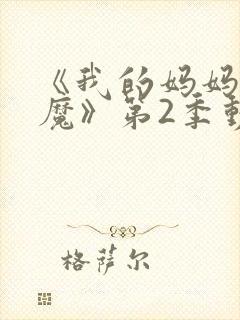 《我的妈妈
魔》第2季
格萨尔